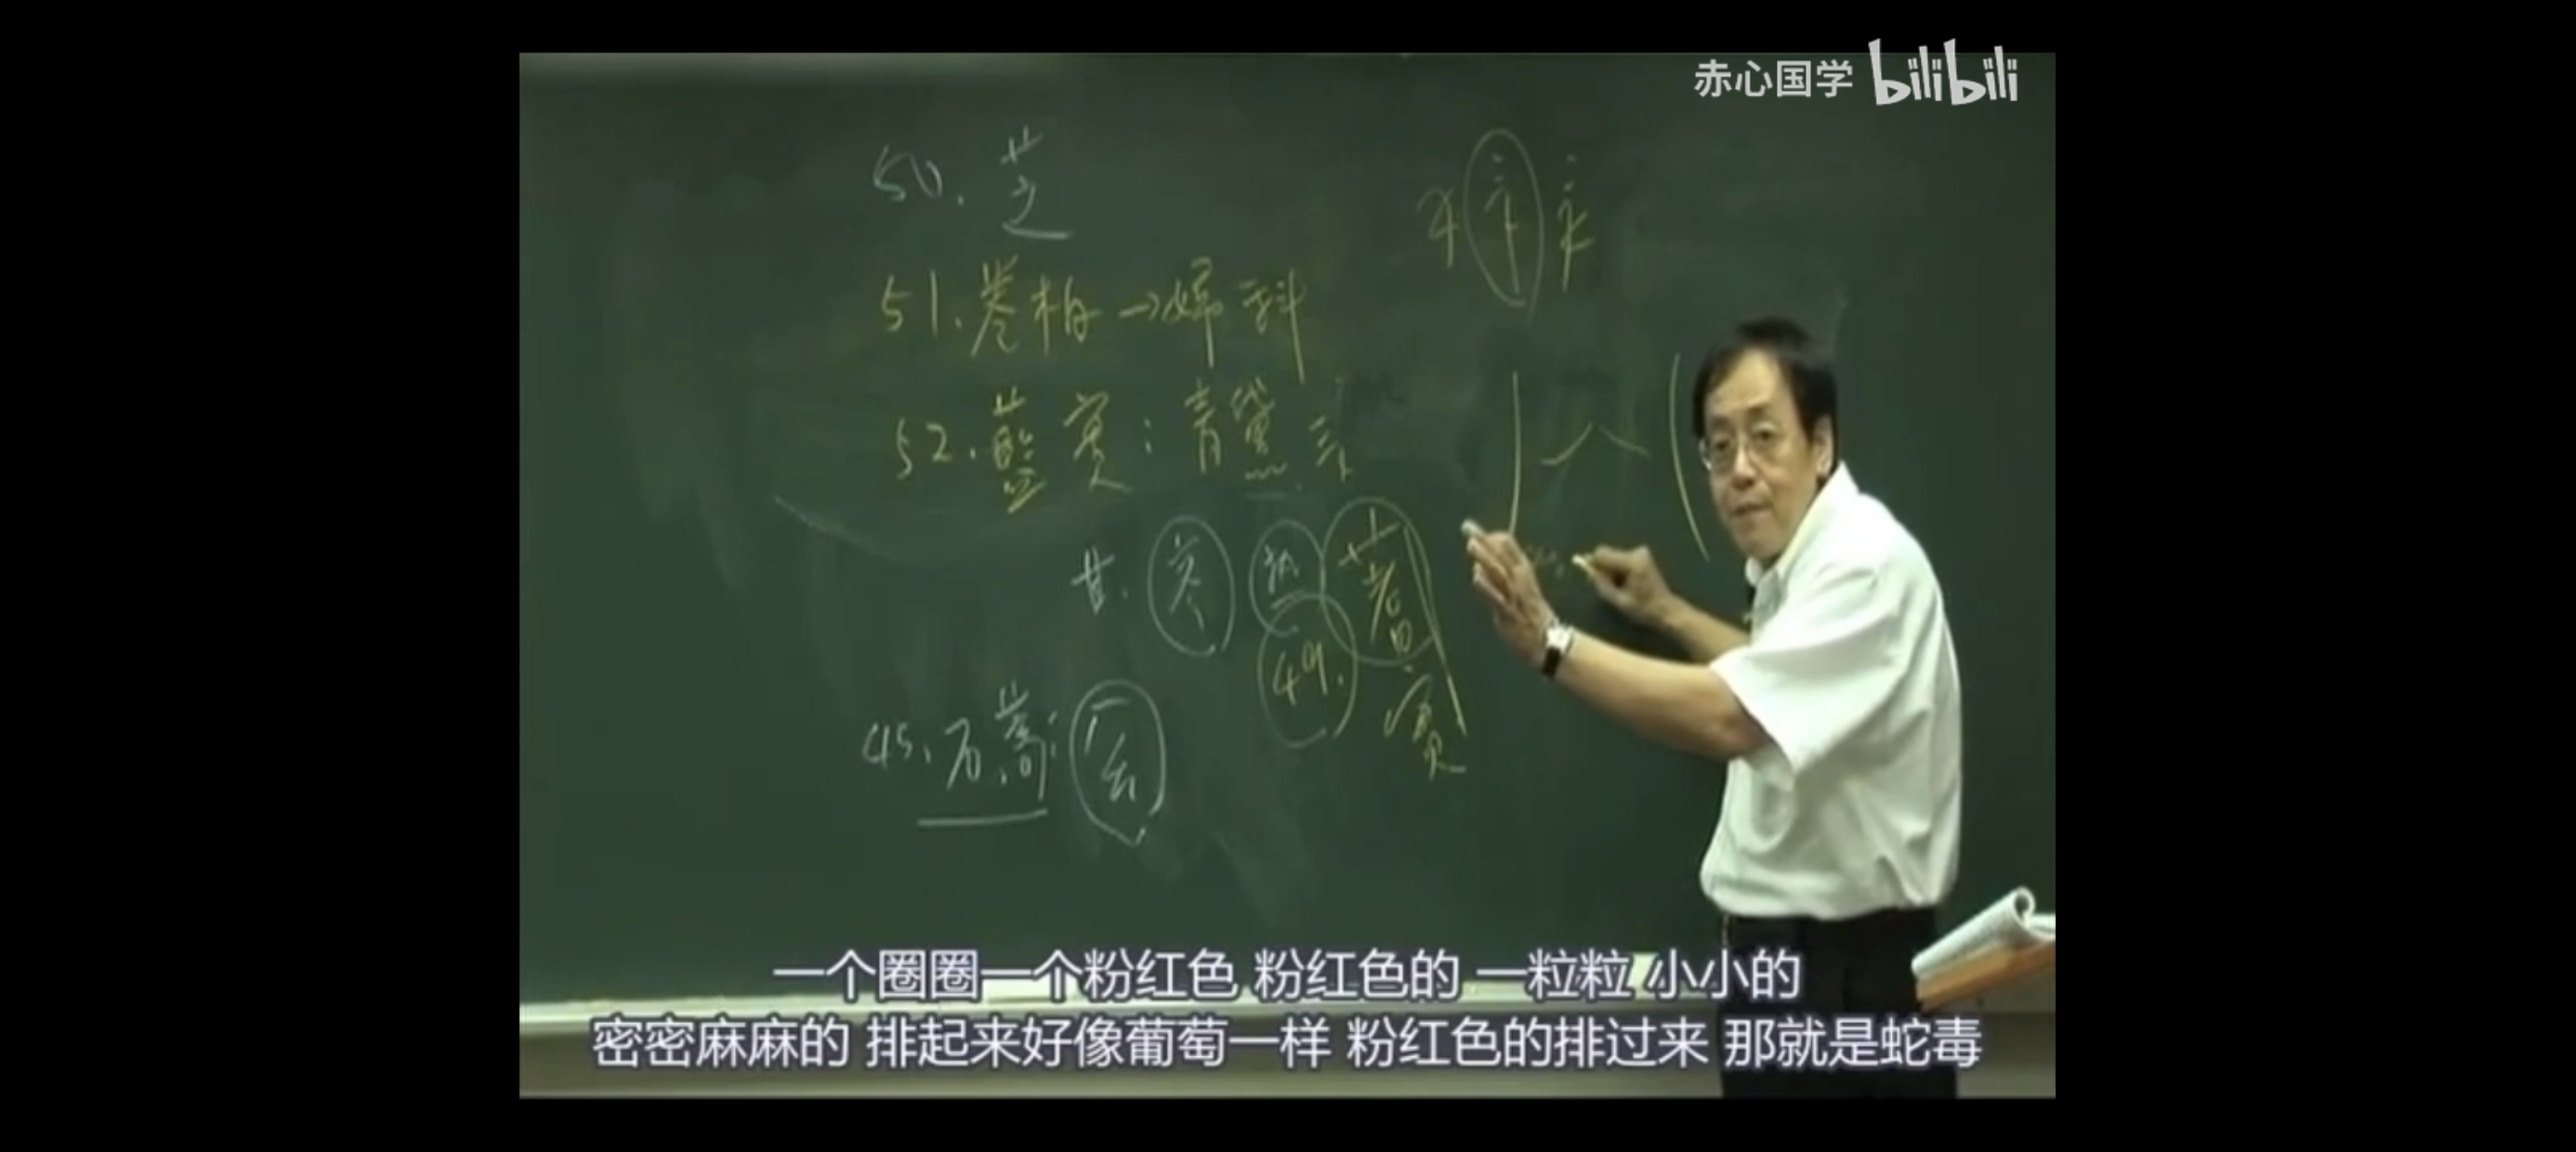 赤心国学 bilibili
50. 芝
51. 卷柏→婦科
52. 藍實：青黛
甘. 苓 蓍
49. 實
45.
一个圈圈一个粉红色 粉红色的 一粒粒 小小的
密密麻麻的 排起来好像葡萄一样 粉红色的排过来 那就是蛇毒